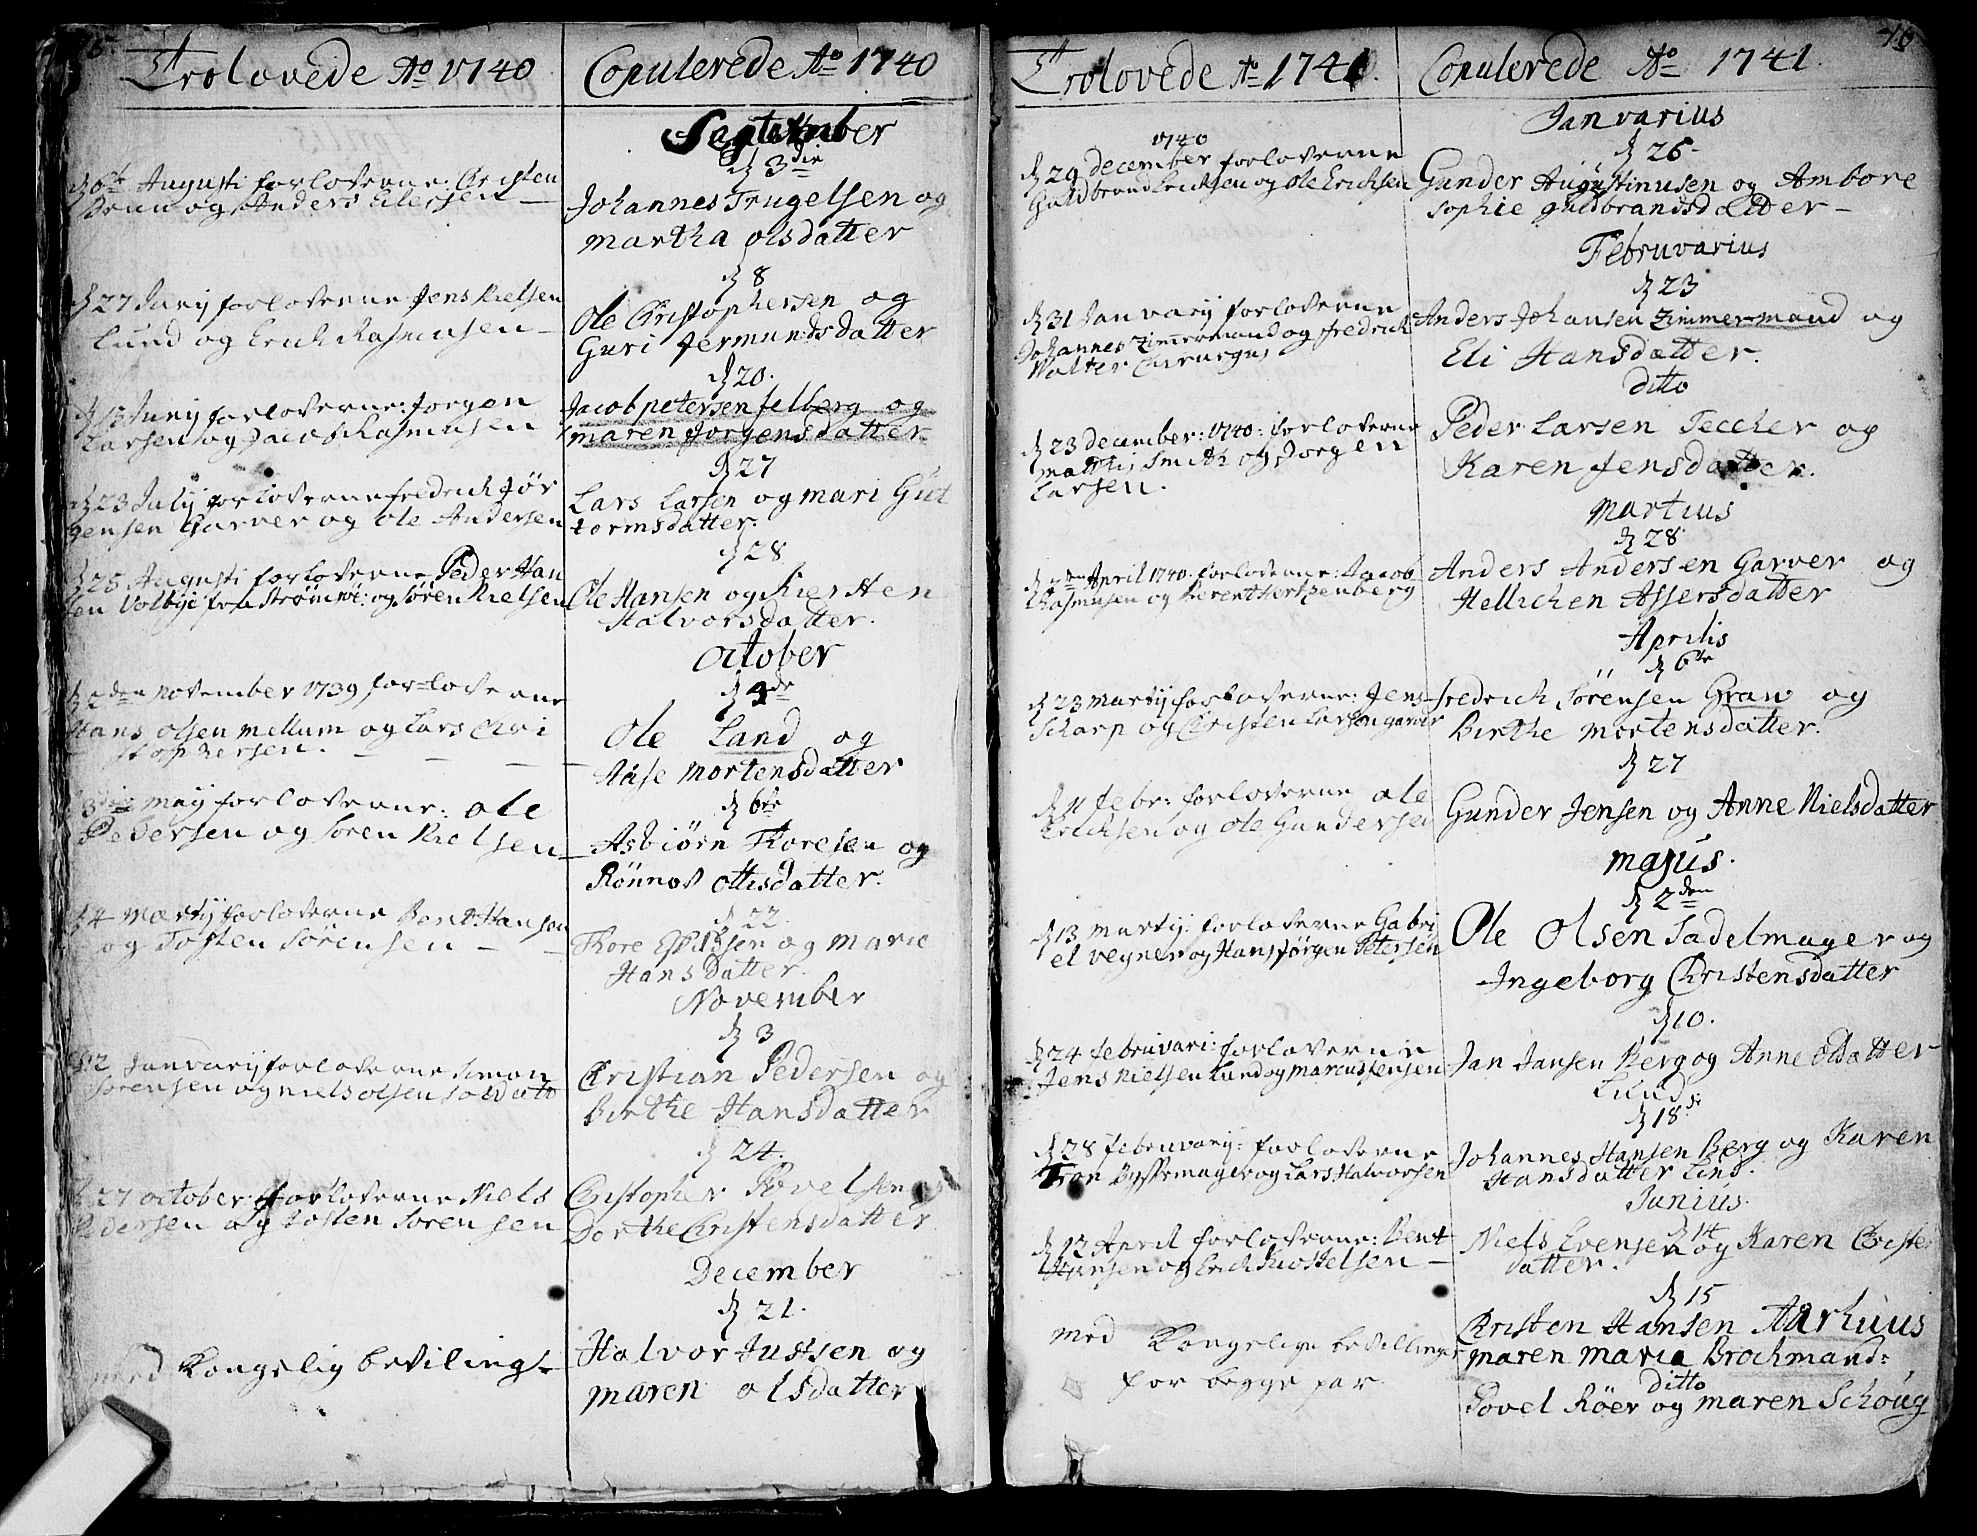 75.
Trolovede Ao 1740
d 6te Augusti forloverne: Christen
Brun og Anders Eilersen
d 27 Junij forloverne Jens Nielsen
Lund og Erich Rasmusen
d 13 Junij forloverne: Jorgen
Larsen og Jacob Rasmusen
d 23 July forloverne fredrich Jør
gensen Garver og Ole Andersen
d 25 Augusti forloverne Peder Han
sen Volbye fra Strømsøe: og Søren Nielsen
d 2den November 1739 forloverne
Hans Olsen Mellum og Lars Chri
stophersen.
d 3die Maij forloverne: Ole
Pedersen og Soren Nielsen
d 4 Martij forloverne Bent Hansen
og Tosten Sörensen
d 2 Januarij forloverne Simon
Sörensen og Niels Olsen Soldatt
d 27 October forloverne Niels
Pedersen og Tosten Sorensen
med Kongelig beviling
Copulerede Ao 1740
September
d 3die
Johannes Trugelsen og
Martha Olsdatter
d 8
Ole Christophersen og
Guri Jermundsdatter
d 20.
Jacob petersen felberg og
maren Jorgensdatter
d 27
Lars Larsen og Mari Gut
tormsdatter:
d 28
Ole Hansen og Kiersten
Halvorsdatter.
October
d 4de
Ole Land og
Aase Mortensdatter
d 6te
Asbiörn Thoresen og
Rönnov Ottisdatter.
d 22
Thore Espensen og Marie
Hansdatter.
November
d 3
Christian Pedersen og
Birthe Hansdatter
d 24.
Christopher Povelsen og
Dorthe Christensdatter
December
d 21.
Halvor Justsen og
maren Olsdatter
76
Trolovede Ao 1741.
1740
d 29 December forloverne
Guldbrand Erichsen og Ole Erichsen
d 31 Januarij forloverne
Johannes Zimmermand og fredrich
Wolter Chirurgus
d 23 December: 1740: forloverne
Matthis Smith og Jorgen
Larsen.
April 1740. forloverne: Jacob
Rasmusen og Berent Hertzenberg
d 23 Martij forloverne: Jens
Scharp og Christen Larsen garver
d 11 febr: forloverne Ole
Erichsen og Ole Gundersen
d 13 Martij: forloverne Gabri
el Vegner og Hans Jörgen Petersen
d 24 februari: forloverne
Jens Nielsen Lund og Marcus Jensen
d 28 februarij: forloverne
Tron Bøssemager og Lars Halvorsen
d 12 April forloverne: Bent
Hansen og Erich Knostelsen
med Kongelige bevillinger
for begge par.
Copulerede Ao 1741.
Januarius
d 26
Gunder Augustinusen og Ambore
Sophie guldbrandsdatter
Februvarius
d 23
Anders Johansen Zimmermand og
Eli Hansdatter.
ditto
Peder Larsen Teccher og
Karen Jensdatter.
Martius
d 28
Anders Andersen Garver og
Hellichen Assersdatter
Aprilis
d 6te
fredrich Sörensen Graw og
Birthe Mortensdatter.
d 27
Gunder Jensen og Anne Nielsdatter
Majus.
d 2den
Ole Olsen Sadelmager og
Ingeborg Christensdatter
d 10.
Jan Jansen Berg og Anne Olsdatter
Lund
d 18
Johannes Hansen Berg og Karen
Hansdatter Lind.
Junius.
d 14
Niels Evensen og Karen Christens
datter.
d 15
Christen Hansen Aarhuus
maren maria Brochmand:
ditto
Povel Röer og maren Schoug